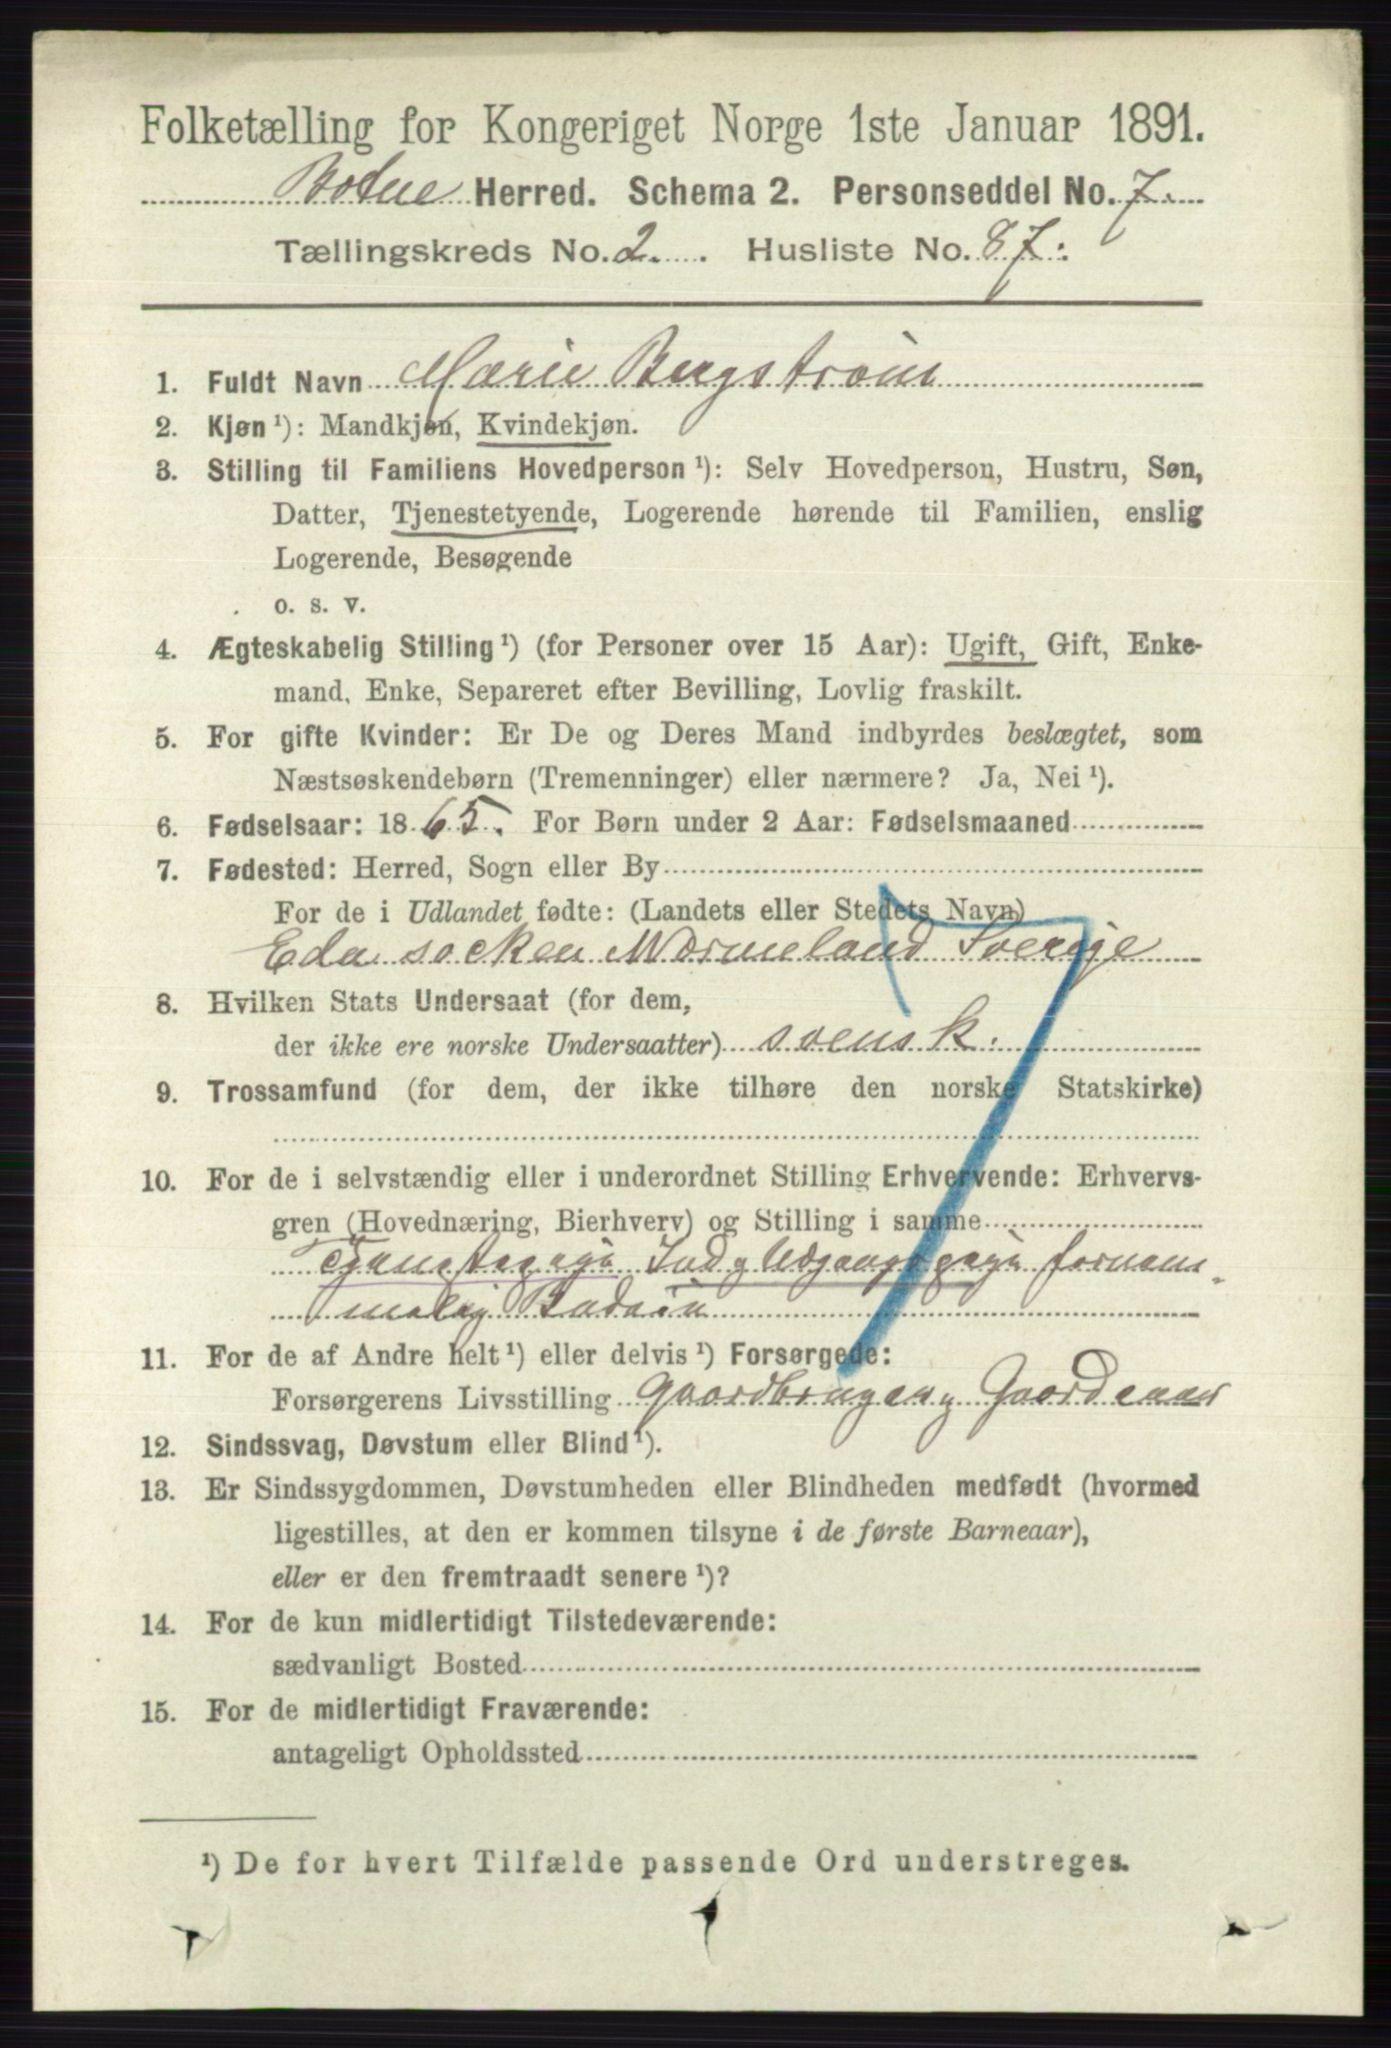 Folketælling for Kongeriget Norge 1ste Januar 1891.
Botne Herred. Schema 2. Personseddel No. 7.
Tællingskreds No. 2. Husliste No. 87.
1. Fuldt Navn Marie Bergstrøm
2. Kjøn ¹): Mandkjøn, Kvindekjøn.
3. Stilling til Familiens Hovedperson ¹): Selv Hovedperson, Hustru, Søn,
Datter, Tjenestetyende, Logerende hørende til Familien, enslig
Logerende, Besøgende
o. s. v.
4. Ægteskabelig Stilling ¹) (for Personer over 15 Aar): Ugift, Gift, Enke-
mand, Enke, Separeret efter Bevilling, Lovlig fraskilt.
5. For gifte Kvinder: Er De og Deres Mand indbyrdes beslægtet, som
Næstsøskendebørn (Tremenninger) eller nærmere? Ja, Nei ¹).
6. Fødselsaar: 1865. For Børn under 2 Aar: Fødselsmaaned
7. Fødested: Herred, Sogn eller By
For de i Udlandet fødte: (Landets eller Stedets Navn)
Eda socken Wærmeland Sverige
8. Hvilken Stats Undersaat (for dem,
der ikke ere norske Undersaatter) svensk.
9. Trossamfund (for dem, der ikke tilhøre den norske Statskirke)
10. For de i selvstændig eller i underordnet Stilling Erhvervende: Erhvervs-
gren (Hovednæring, Bierhverv) og Stilling i samme
Tjenestepige Ind og Udgangspige fornem-
melig
11. For de af Andre helt ¹) eller delvis ¹) Forsørgede:
Forsørgerens Livsstilling Gaardbruger og
12. Sindssvag, Døvstum eller Blind ¹).
13. Er Sindssygdommen, Døvstumheden eller Blindheden medfødt (hvormed
ligestilles, at den er kommen tilsyne i de første Barneaar),
eller er den fremtraadt senere ¹)?
14. For de kun midlertidigt Tilstedeværende:
sædvanligt Bosted
15. For de midlertidigt Fraværende:
antageligt Opholdssted
¹) De for hvert Tilfælde passende Ord understreges.
7